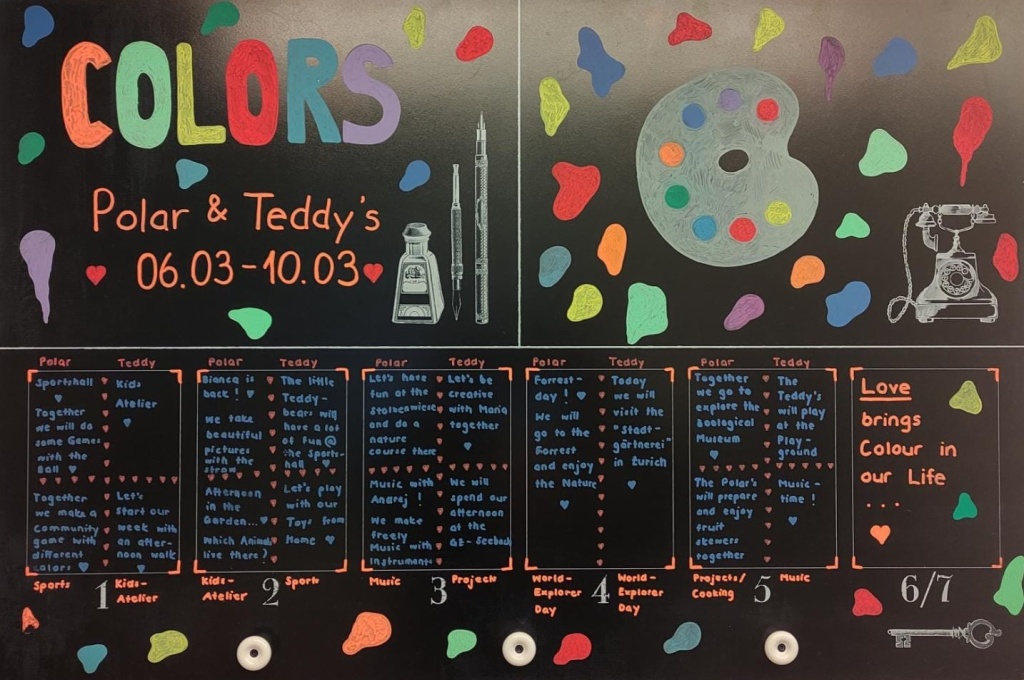 COLORS
Polar & Teddy's
06.03-10.03
Polar
Sportshall
Together
we will do
some Games
with the
Ball
Together
we make a
Community
game with
different
colors
Teddy
Kids
Atelier
Let's
Start our
week with
an after-
noon walk
Sports
1
Kids-
Atelier
Polar
Bianca is
back!
We take
beautiful
pictures
with the
straw
Afternoon
in the
Garden...
which Animals
live there?
Teddy
The little
Teddy-
bears will
have a lot
of fun @
the Sports-
hall
Let's play
with our
Toys from
Home
Kids-
Atelier
2
Sports
Polar
Let's have
fun at the
Stolzenwiese
and do a
nature
course there
Music with
Andrej!
We make
freely
Music with
Instruments
Teddy
Let's be
creative
with Maria
together
We will
spend our
afternoon
at the
GZ-Seebach
Music
3
Projects
Polar
Forrest-
day!
We will
go to the
Forrest
and enjoy
the Nature
Teddy
Today
we will
visit the
"Stadt-
gärtnerei"
in Zurich
World-
Explorer
Day
4
World-
Explorer
Day
Polar
Together
we go to
explore the
zoological
Museum
The Polar's
will prepare
and enjoy
fruit
skewers
together
Teddy
The
Teddy's
will play
at the
Play-
ground
Music-
time!
Projects/
Cooking
5
Music
Love
brings
Colour in
our Life
...
6/7